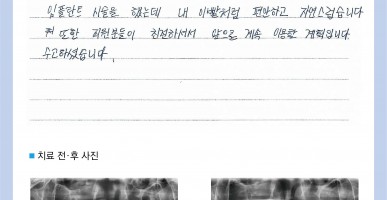 임플란트 시술을 했는데 내 이빨처럼 편안하고 자연스럽습니다
또한 직원분들이 친절하셔서 앞으로 계속 이용할 계획입니다
수고하셨습니다.
■ 치료 전·후 사진